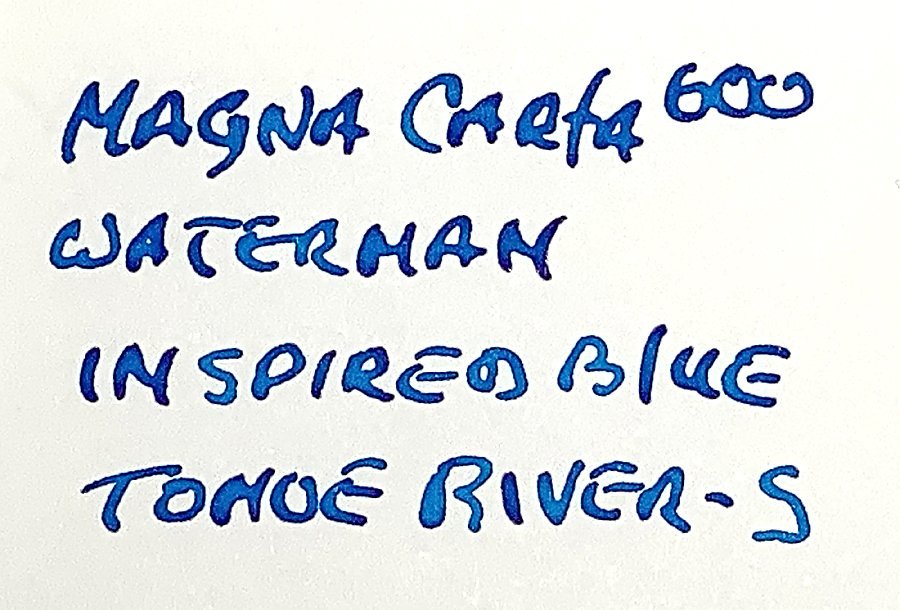 MAGNA CARtA 600
WATERMAN
INSPIRED BlUE
TOMOE RIVER-S